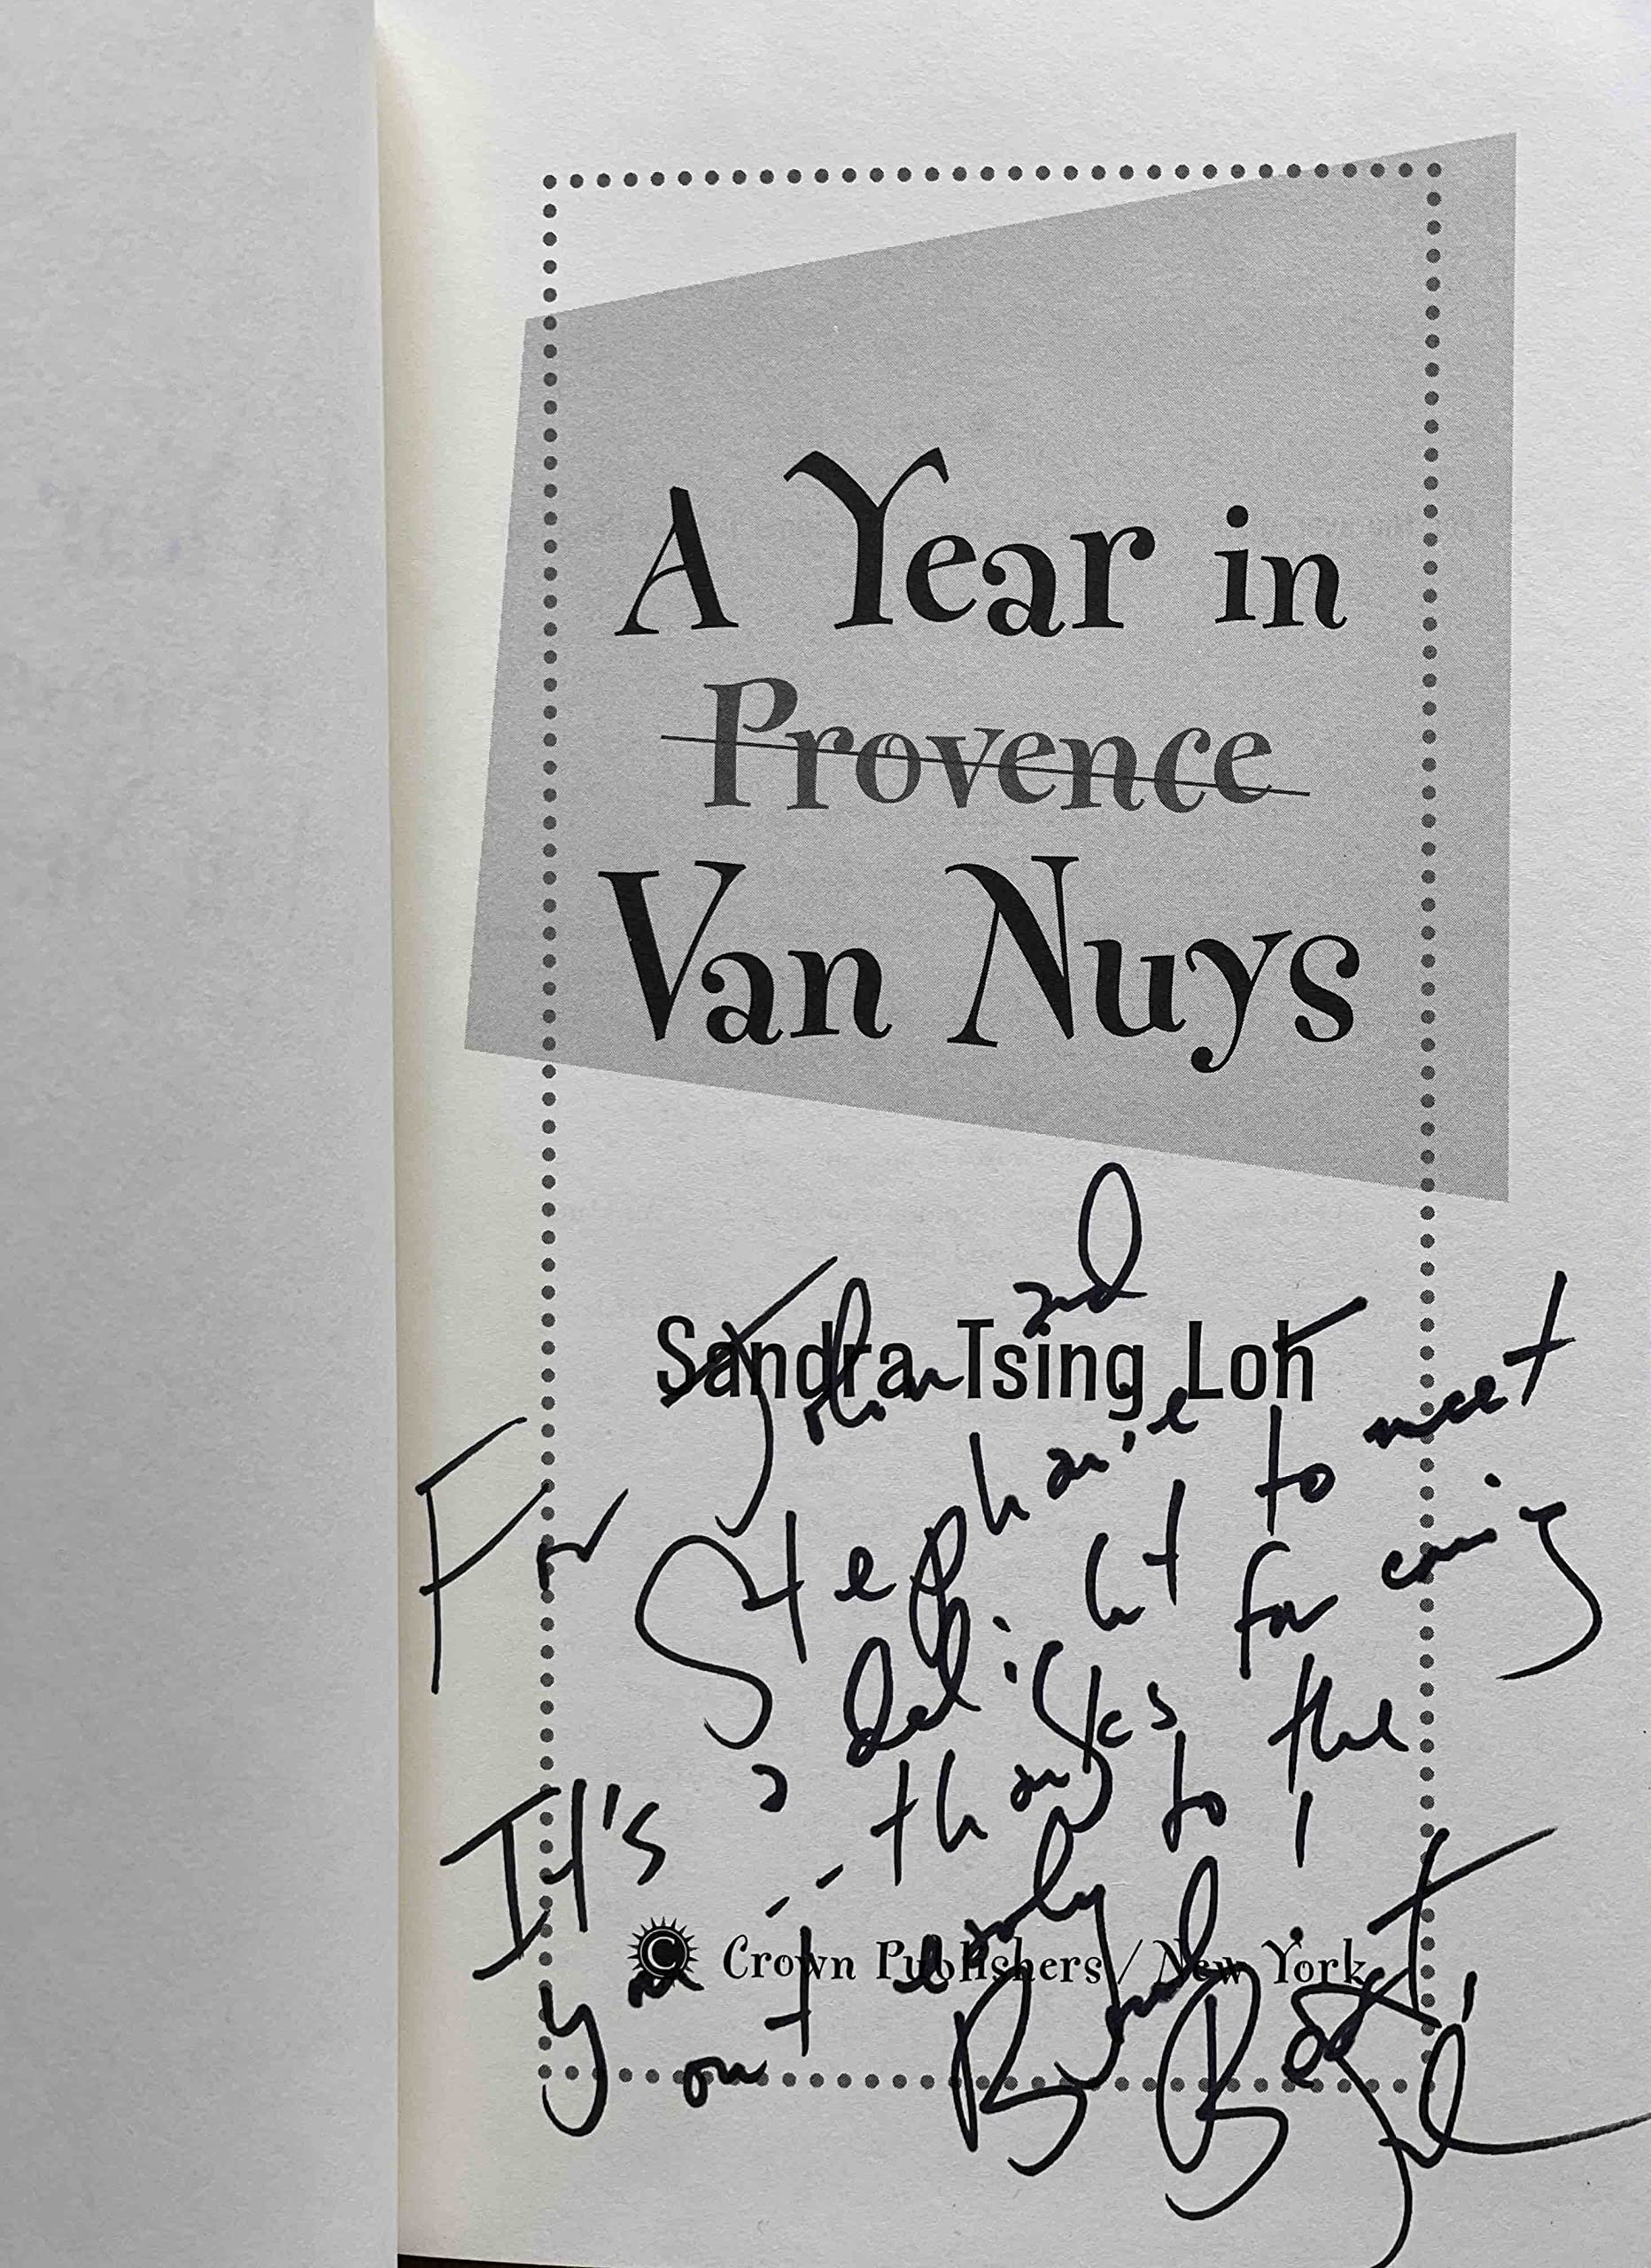 A Year in
Provence
Van Nuys
Sandra Tsing Loh
For John and
Stephanie
It's a delight to meet
you -- thanks for coming
out to the
Best
Crown Publishers / New York